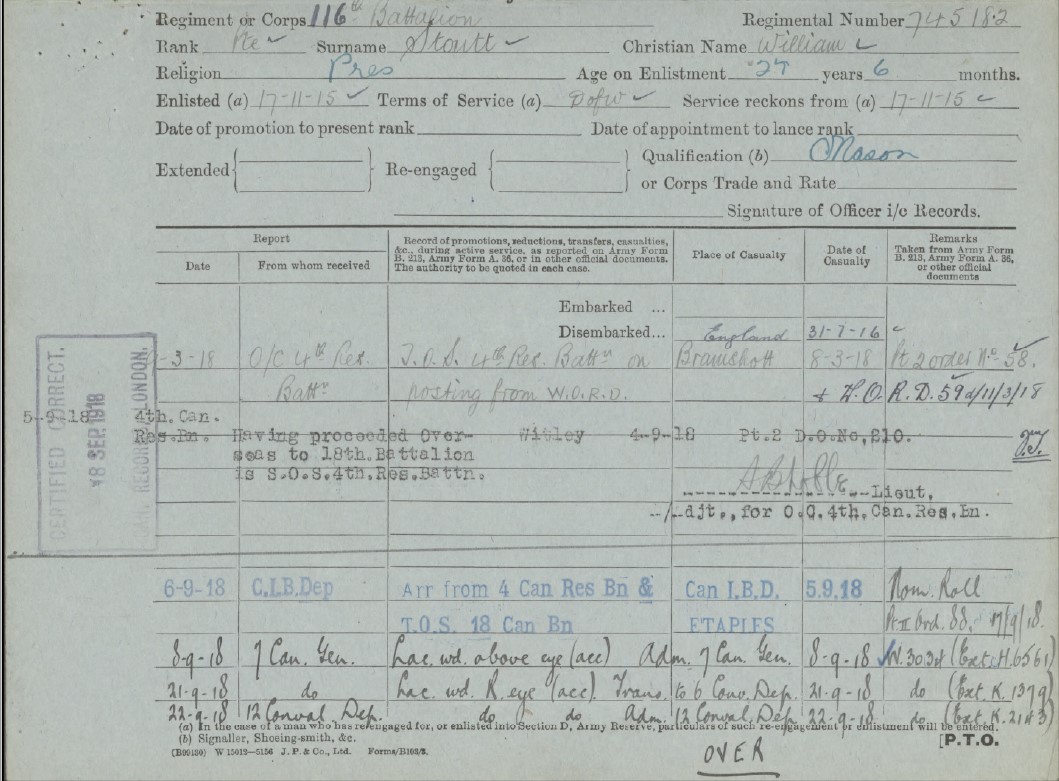 Regiment or Corps 116th Battalion Regimental Number 745182
Rank Pte Surname Stoutt Christian Name William
Religion Pres Age on Enlistment 27 years 6 months.
Enlisted (a) 17-11-15 Terms of Service (a) DofW Service reckons from (a) 17-11-15
Date of promotion to present rank Date of appointment to lance rank
Extended Re-engaged Qualification (b) Mason
or Corps Trade and Rate
Signature of Officer i/c Records.
Report
Date From whom received
Record of promotions, reductions, transfers, casualties, &c., during active service, as reported on Army Form B. 213, Army Form A. 36, or in other official documents. The authority to be quoted in each case.
Place of Casualty
Date of Casualty
Remarks
Taken from Army Form B. 213, Army Form A. 36, or other official documents
Embarked ...
Disembarked... England 31-7-16
-3-18 O/C 4th Res. T.O.S. 4th Res. Battn on Bramshott 8-3-18 Pt 2 order No 58.
Battn posting from W.O.R.D. + W.O.R.D. 59 d/11/3/18
CERTIFIED CORRECT.
18 SEP 1918
CAN. RECORDS LONDON.
5-9-18 4th.Can.
Res.Bn. Having proceeded Over- Witley 4-9-18 Pt.2 D.O.No,210.
seas to 18th.Battalion
is S.O.S.4th.Res.Battn.
Lieut,
/Adjt., for O.C.4th.Can.Res.Bn.
6-9-18 C.I.B.Dep Arr from 4 Can Res Bn & Can I.B.D. 5.9.18 Nom. Roll
T.O.S. 18 Can Bn ETAPLES Pt II Ord. 88. 17/9/18.
8-9-18 7 Can. Gen. Lac. wd. above eye (acc) Adm. 7 Can. Gen. 8-9-18 W.3034 (Ext. H.6561)
21-9-18 do Lac. wd. R. eye (acc) Trans. to 6 Conv. Dep. 21-9-18 do (Ext. K.1379)
22-9-18 12 Conval. Dep. do do Adm. 12 Conval. Dep. 22-9-18 do (Ext. K.2143)
(a) In the case of a man who has re-engaged for, or enlisted into Section D, Army Reserve, particulars of such re-engagement or enlistment will be entered.
(b) Signaller, Shoeing-smith, &c.
(B99130) W 15012—5156 J. P. & Co., Ltd. Forms/B103/3. [P.T.O.
OVER